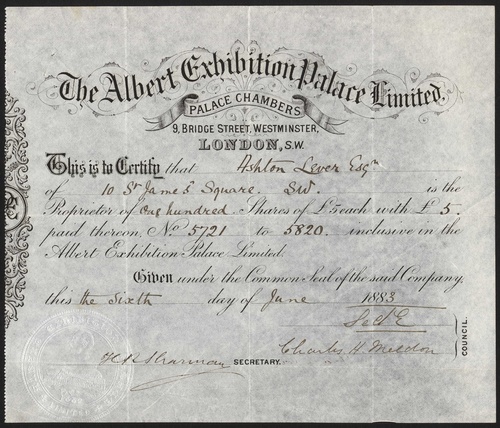 The Albert Exhibition Palace Limited.
PALACE CHAMBERS
9, BRIDGE STREET, WESTMINSTER,
LONDON, S.W.
This is to Certify that Ashton Lever Esqre
of 10 St James's Square. SW. is the
Proprietor of One hundred Shares of £5 each with £ 5.
paid thereon, No. 5721 to 5820. inclusive in the
Albert Exhibition Palace Limited.
Given under the Common Seal of the said Company,
this the Sixth day of June 1883
COUNCIL.
SECRETARY.
Charles H Meldon